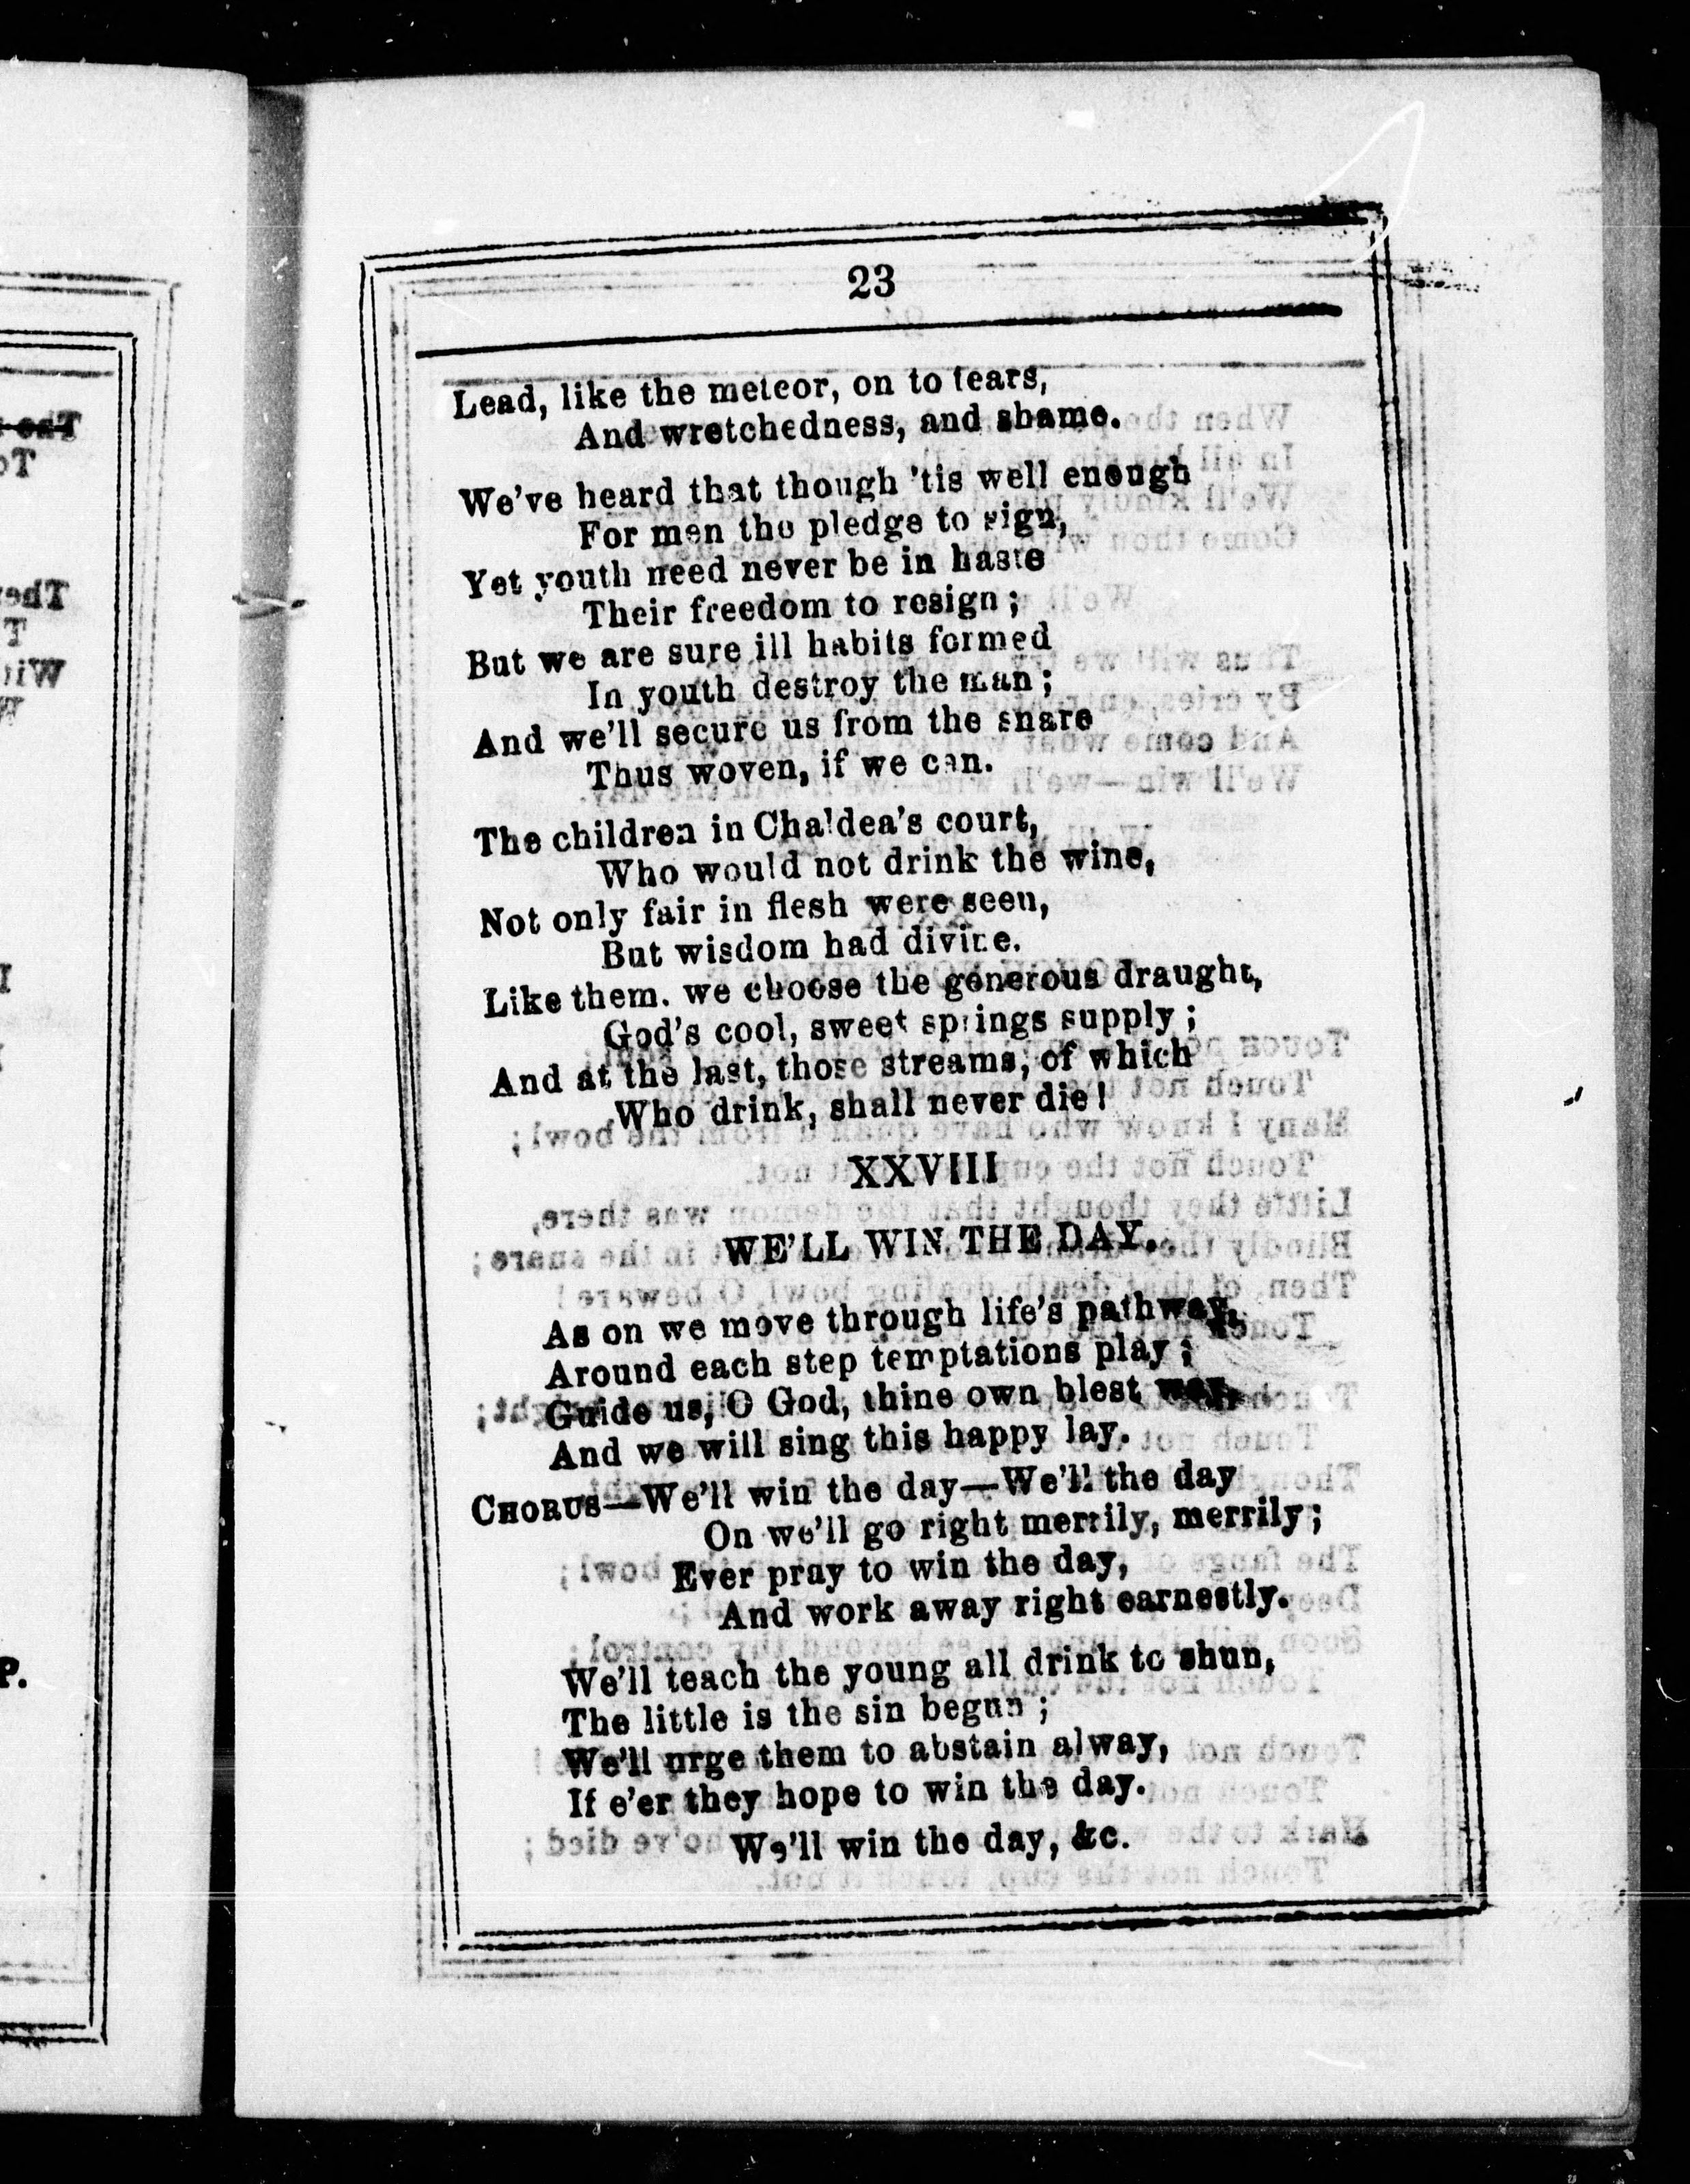 23
Lead, like the meteor, on to tears,
And wretchedness, and shame.
We've heard that though 'tis well enough
For men the pledge to sign,
Yet youth need never be in haste
Their freedom to resign;
But we are sure ill habits formed
In youth destroy the man;
And we'll secure us from the snare
Thus woven, if we can.
The children in Chaldea's court,
Who would not drink the wine,
Not only fair in flesh were seen,
But wisdom had divine.
Like them. we choose the generous draught,
God's cool, sweet springs supply;
And at the last, those streams, of which
Who drink, shall never die!
XXVIII
WE'LL WIN THE DAY.
As on we move through life's pathway,
Around each step temptations play;
Guide us, O God, thine own blest way,
And we will sing this happy lay.
CHORUS—We'll win the day—We'll the day
On we'll go right merrily, merrily;
Ever pray to win the day,
And work away right earnestly.
We'll teach the young all drink to shun,
The little is the sin begun;
We'll urge them to abstain alway,
If e'er they hope to win the day.
We'll win the day, &c.
P.